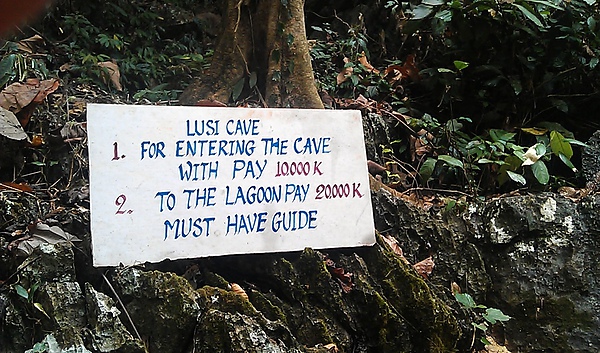 LUSI CAVE
1. FOR ENTERING THE CAVE
WITH PAY 10.000 K
2. TO THE LAGOON PAY 20.000 K
MUST HAVE GUIDE